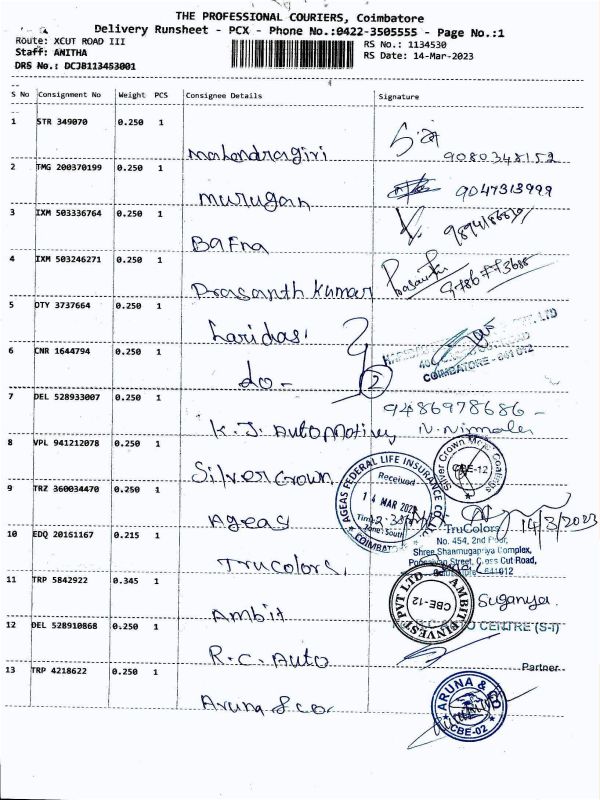 THE PROFESSIONAL COURIERS, Coimbatore
Delivery Runsheet - PCX - Phone No.:0422-3505555 - Page No.:1
Route: XCUT ROAD III
RS No.: 1134530
Staff: ANITHA
RS Date: 14-Mar-2023
DRS No.: DCJB113453001
S No Consignment No Weight PCS Consignee Details Signature
1 STR 349070 0.250 1
Mahendragiri 9080348152
2 TMG 200370199 0.250 1
murugan 9047313999
3 IXM 503336764 0.250 1
Bafna
4 IXM 503246271 0.250 1
Prasanth kumar Prasanth 9786773688
5 DTY 3737664 0.250 1
haridas
6 CNR 1644794 0.250 1
do - 2
COIMBATORE - 641 012
7 DEL 528933007 0.250 1
9486978686 -
K.J. Automotives N. Nirmala
8 VPL 941212078 0.250 1
Silver Crown Silver Crown Metal Coatings CBE-12
9 TRZ 360034470 0.250 1
AGEAS FEDERAL LIFE INSURANCE CO. Received 14 MAR 2023 Zone: South COIMBATORE
Ageas 14/3/2023
10 EDQ 20161167 0.215 1
TruColors
No. 454, 2nd Floor,
Shree Shanmugapriya Complex,
Cross Cut Road,
641012
Trucolors
11 TRP 5842922 0.345 1
AMBIT FINVEST PVT LTD CBE-12
Ambit Suganya
12 DEL 528910868 0.250 1
AUTO CENTRE (S-I)
R.C. Auto
Partner
13 TRP 4218622 0.250 1
Aruna & co. ARUNA & CO CBE-02